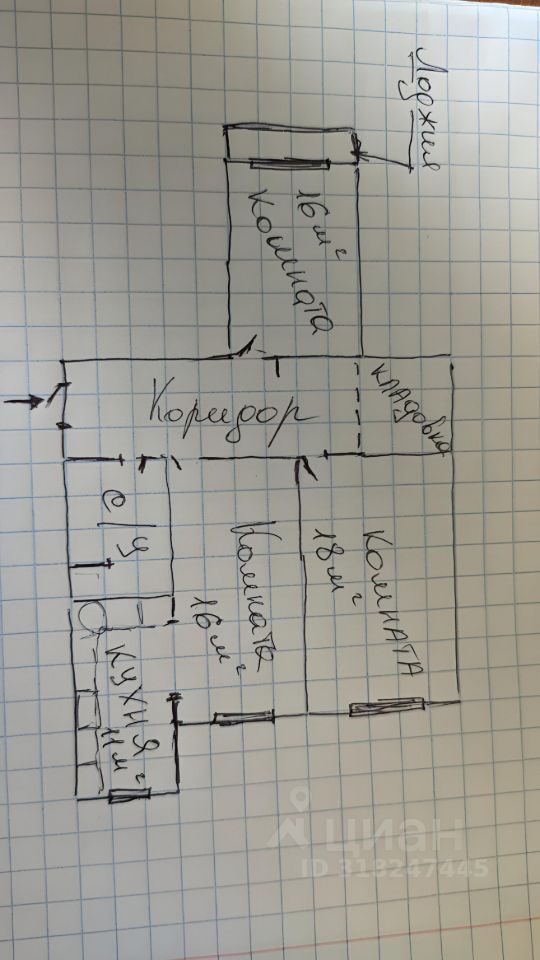 Лоджия
16 м²
комната
кладовка
Коридор
с/у
Комната
18 м²
Комната
16 м²
кухня
11 м²
циан
ID 318247445